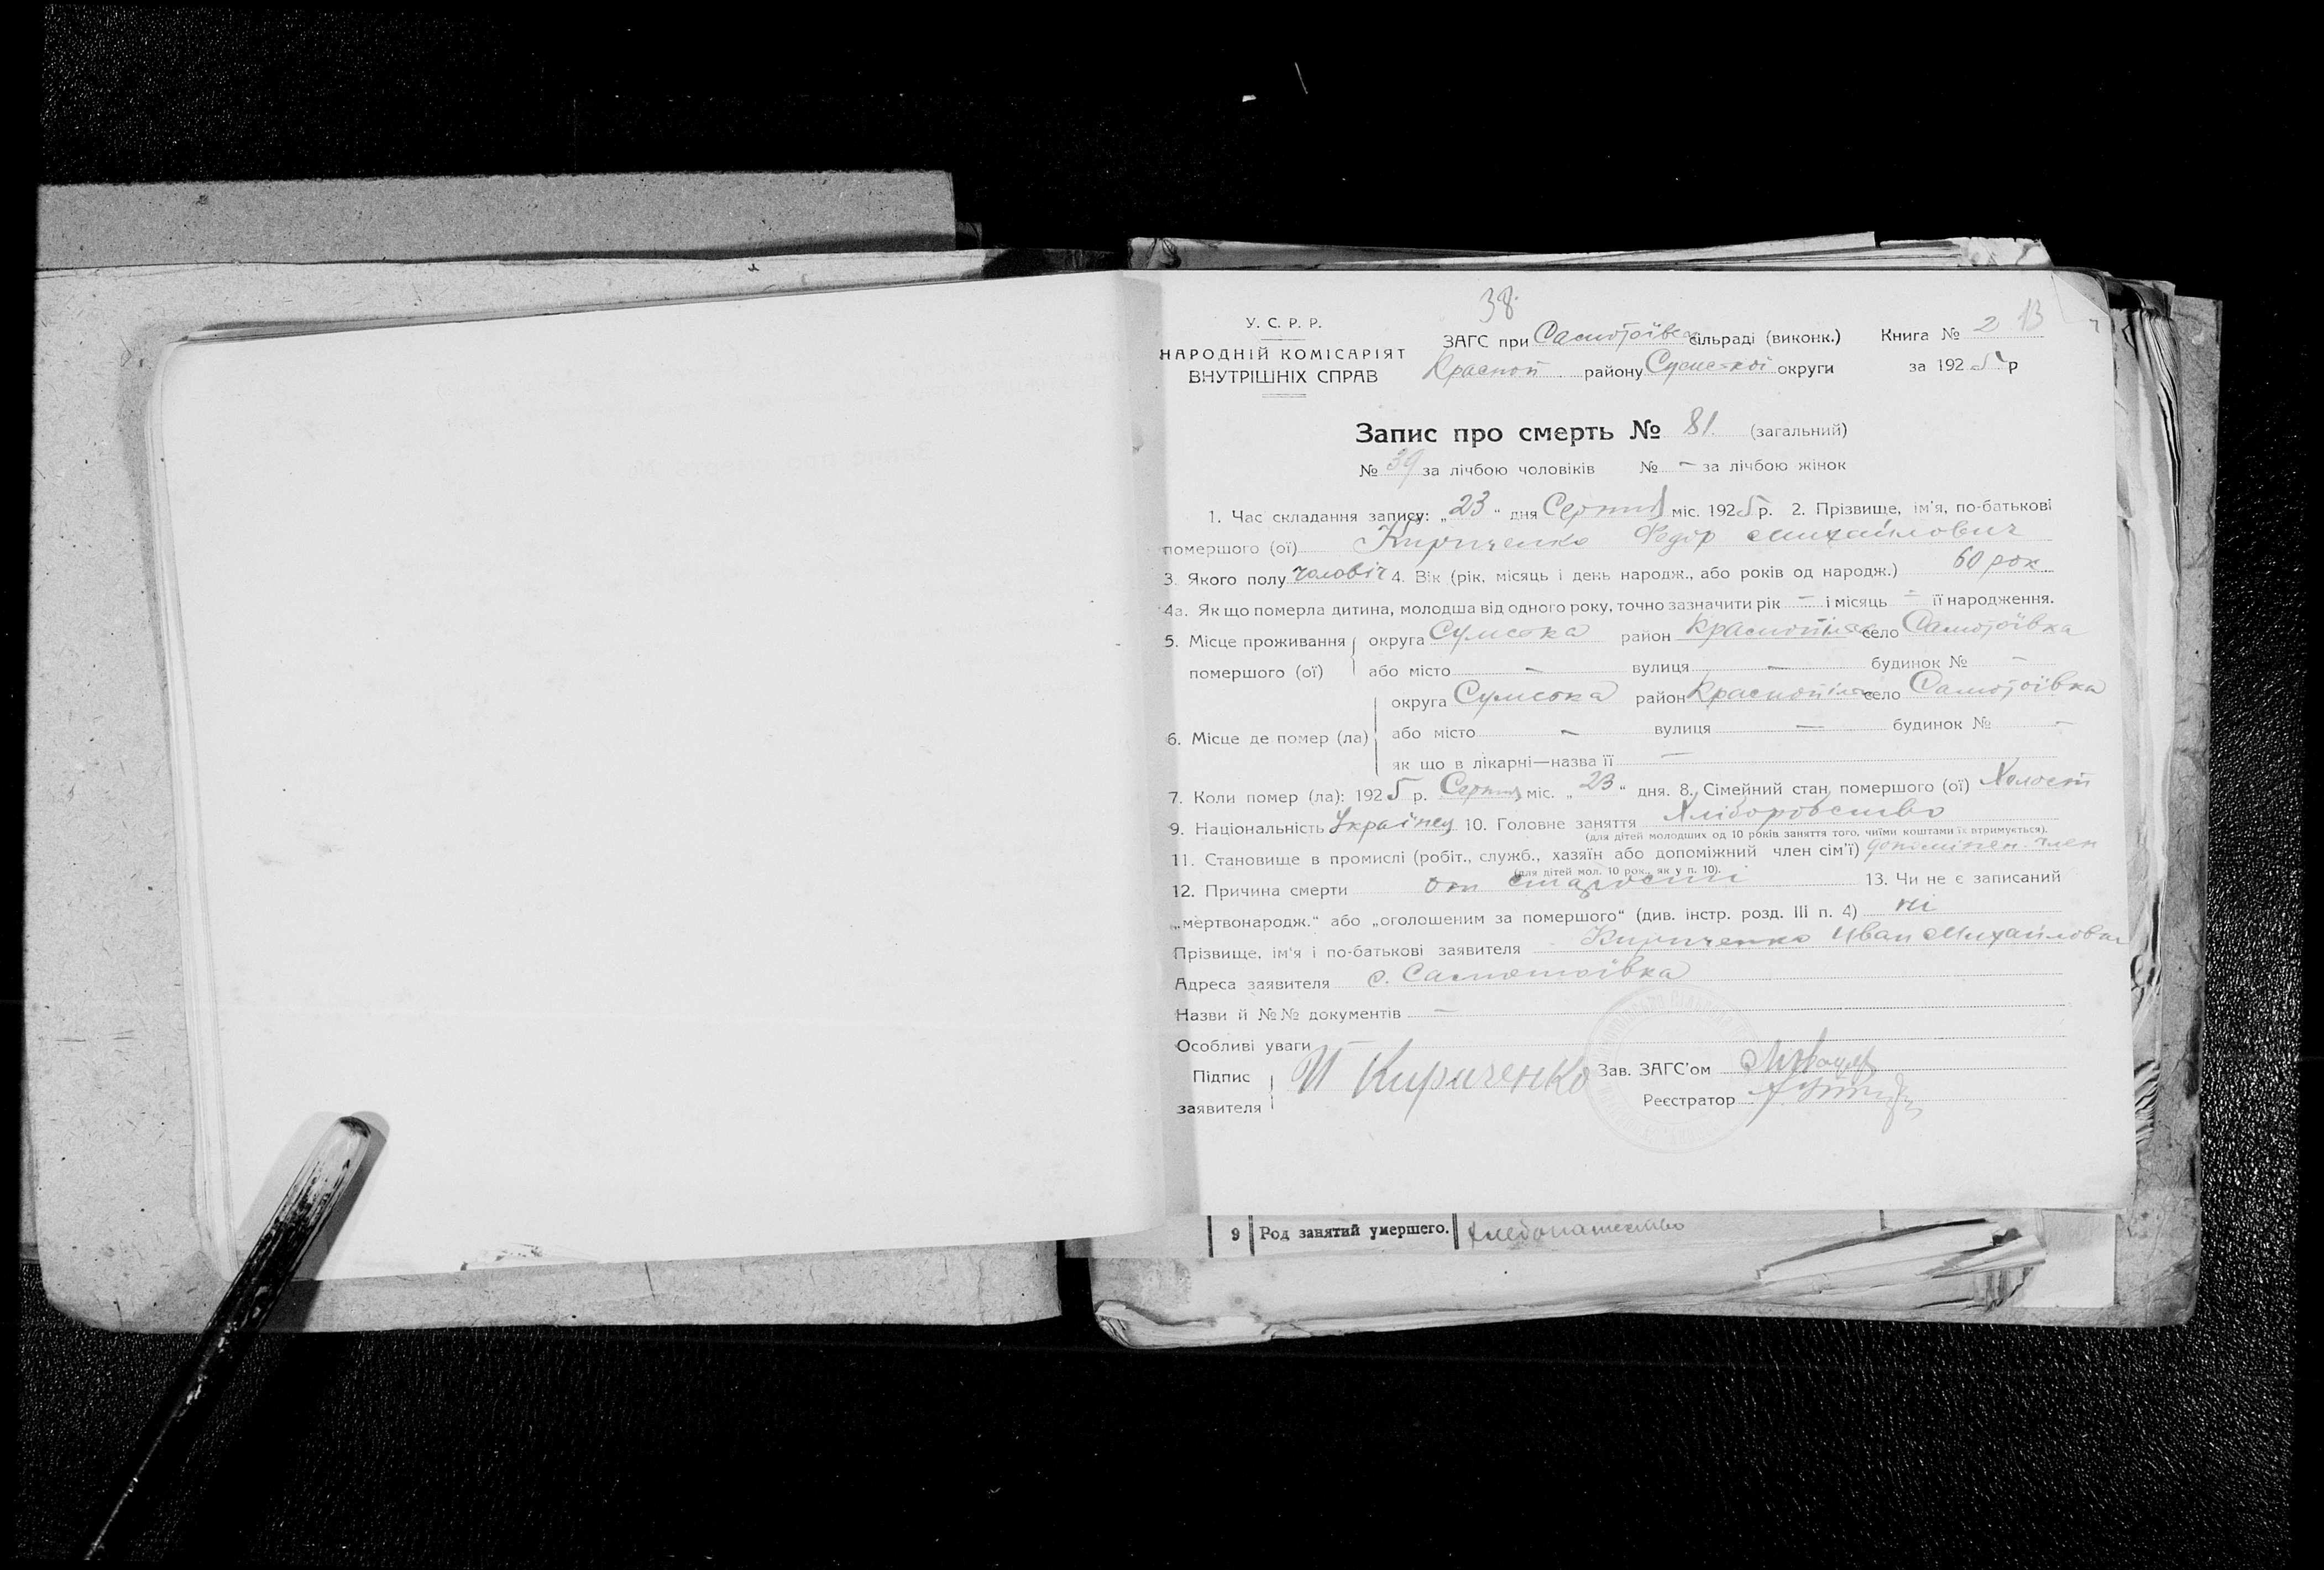 38.
У. С. Р. Р.
НАРОДНІЙ КОМІСАРІЯТ
ВНУТРІШНІХ СПРАВ
ЗАГС при Самотоївск сільраді (виконк.) Книга № 2 13
Красноп району Сумської округи за 1925 р
Запис про смерть № 81. (загальний)
№ 39 за лічбою чоловіків № — за лічбою жінок
1. Час складання запису: „23“ дня Серпня міс. 1925 р. 2. Прізвище, ім'я, по-батькові
помершого (ої) Кириченко Федір Михайлович
3. Якого полу чоловіч 4. Вік (рік, місяць і день народж., або років од народж.) 60 рок
4а. Як що померла дитина, молодша від одного року, точно зазначити рік — і місяць — її народження.
5. Місце проживання помершого (ої) округа Сумська район Краснопільск село Самотоївка
або місто — вулиця — будинок № —
6. Місце де помер (ла) округа Сумська район Краснопільск село Самотоївка
або місто — вулиця — будинок № —
як що в лікарні—назва її —
7. Коли помер (ла): 1925 р. Серпня міс. „23“ дня. 8. Сімейний стан помершого (ої) Холост
9. Національність Українец 10. Головне заняття Хліборобство
(для дітей молодших од 10 років заняття того, чиїми коштами їх втримується).
11. Становище в промислі (робіт., служб., хазяїн або допоміжний член сім'ї) допоміжн. член
(для дітей мол. 10 рок., як у п. 10).
12. Причина смерти от старости 13. Чи не є записаний
„мертвонародж.“ або „оголошеним за помершого“ (див. інстр. розд. III п. 4) ні
Прізвище, ім'я і по-батькові заявителя Кириченко Иван Михайлович
Адреса заявителя с. Самотоївка
Назви й №№ документів —
Особливі уваги
Підпис заявителя И Кириченко Зав. ЗАГС'ом
Реєстратор
9 Род занятий умершего. хлебопашество